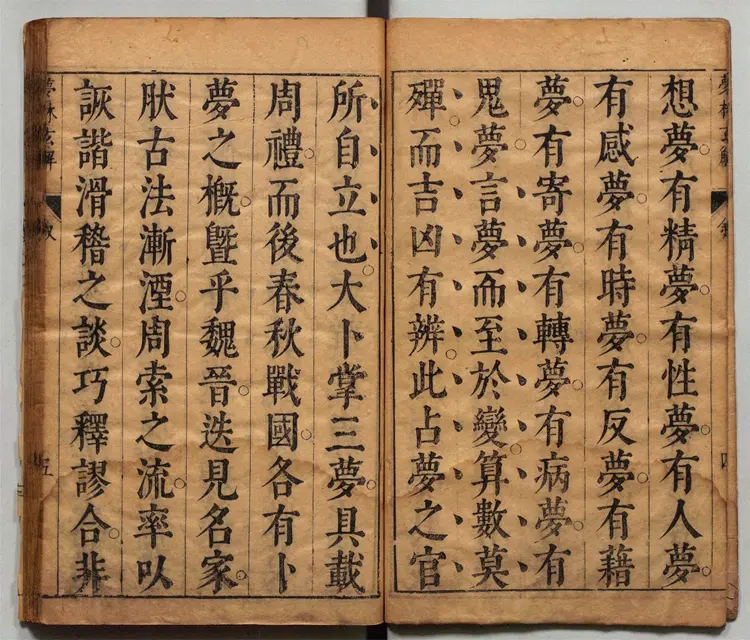 想夢。有精夢。有性夢。有人夢。
有感夢。有時夢。有反夢。有藉
夢。有寄夢。有轉夢。有病夢。有
鬼夢。言夢而至於變。算數莫
殫。而吉凶有辨。此占夢之官
所自立也。大卜掌三夢。具載
周禮。而後春秋戰國。各有卜
夢之槪。曁乎魏晉。迭見名家。
肰古法漸湮。周索之流。率以
詼諧滑稽之談。巧釋謬合。非
夢林玄解
五